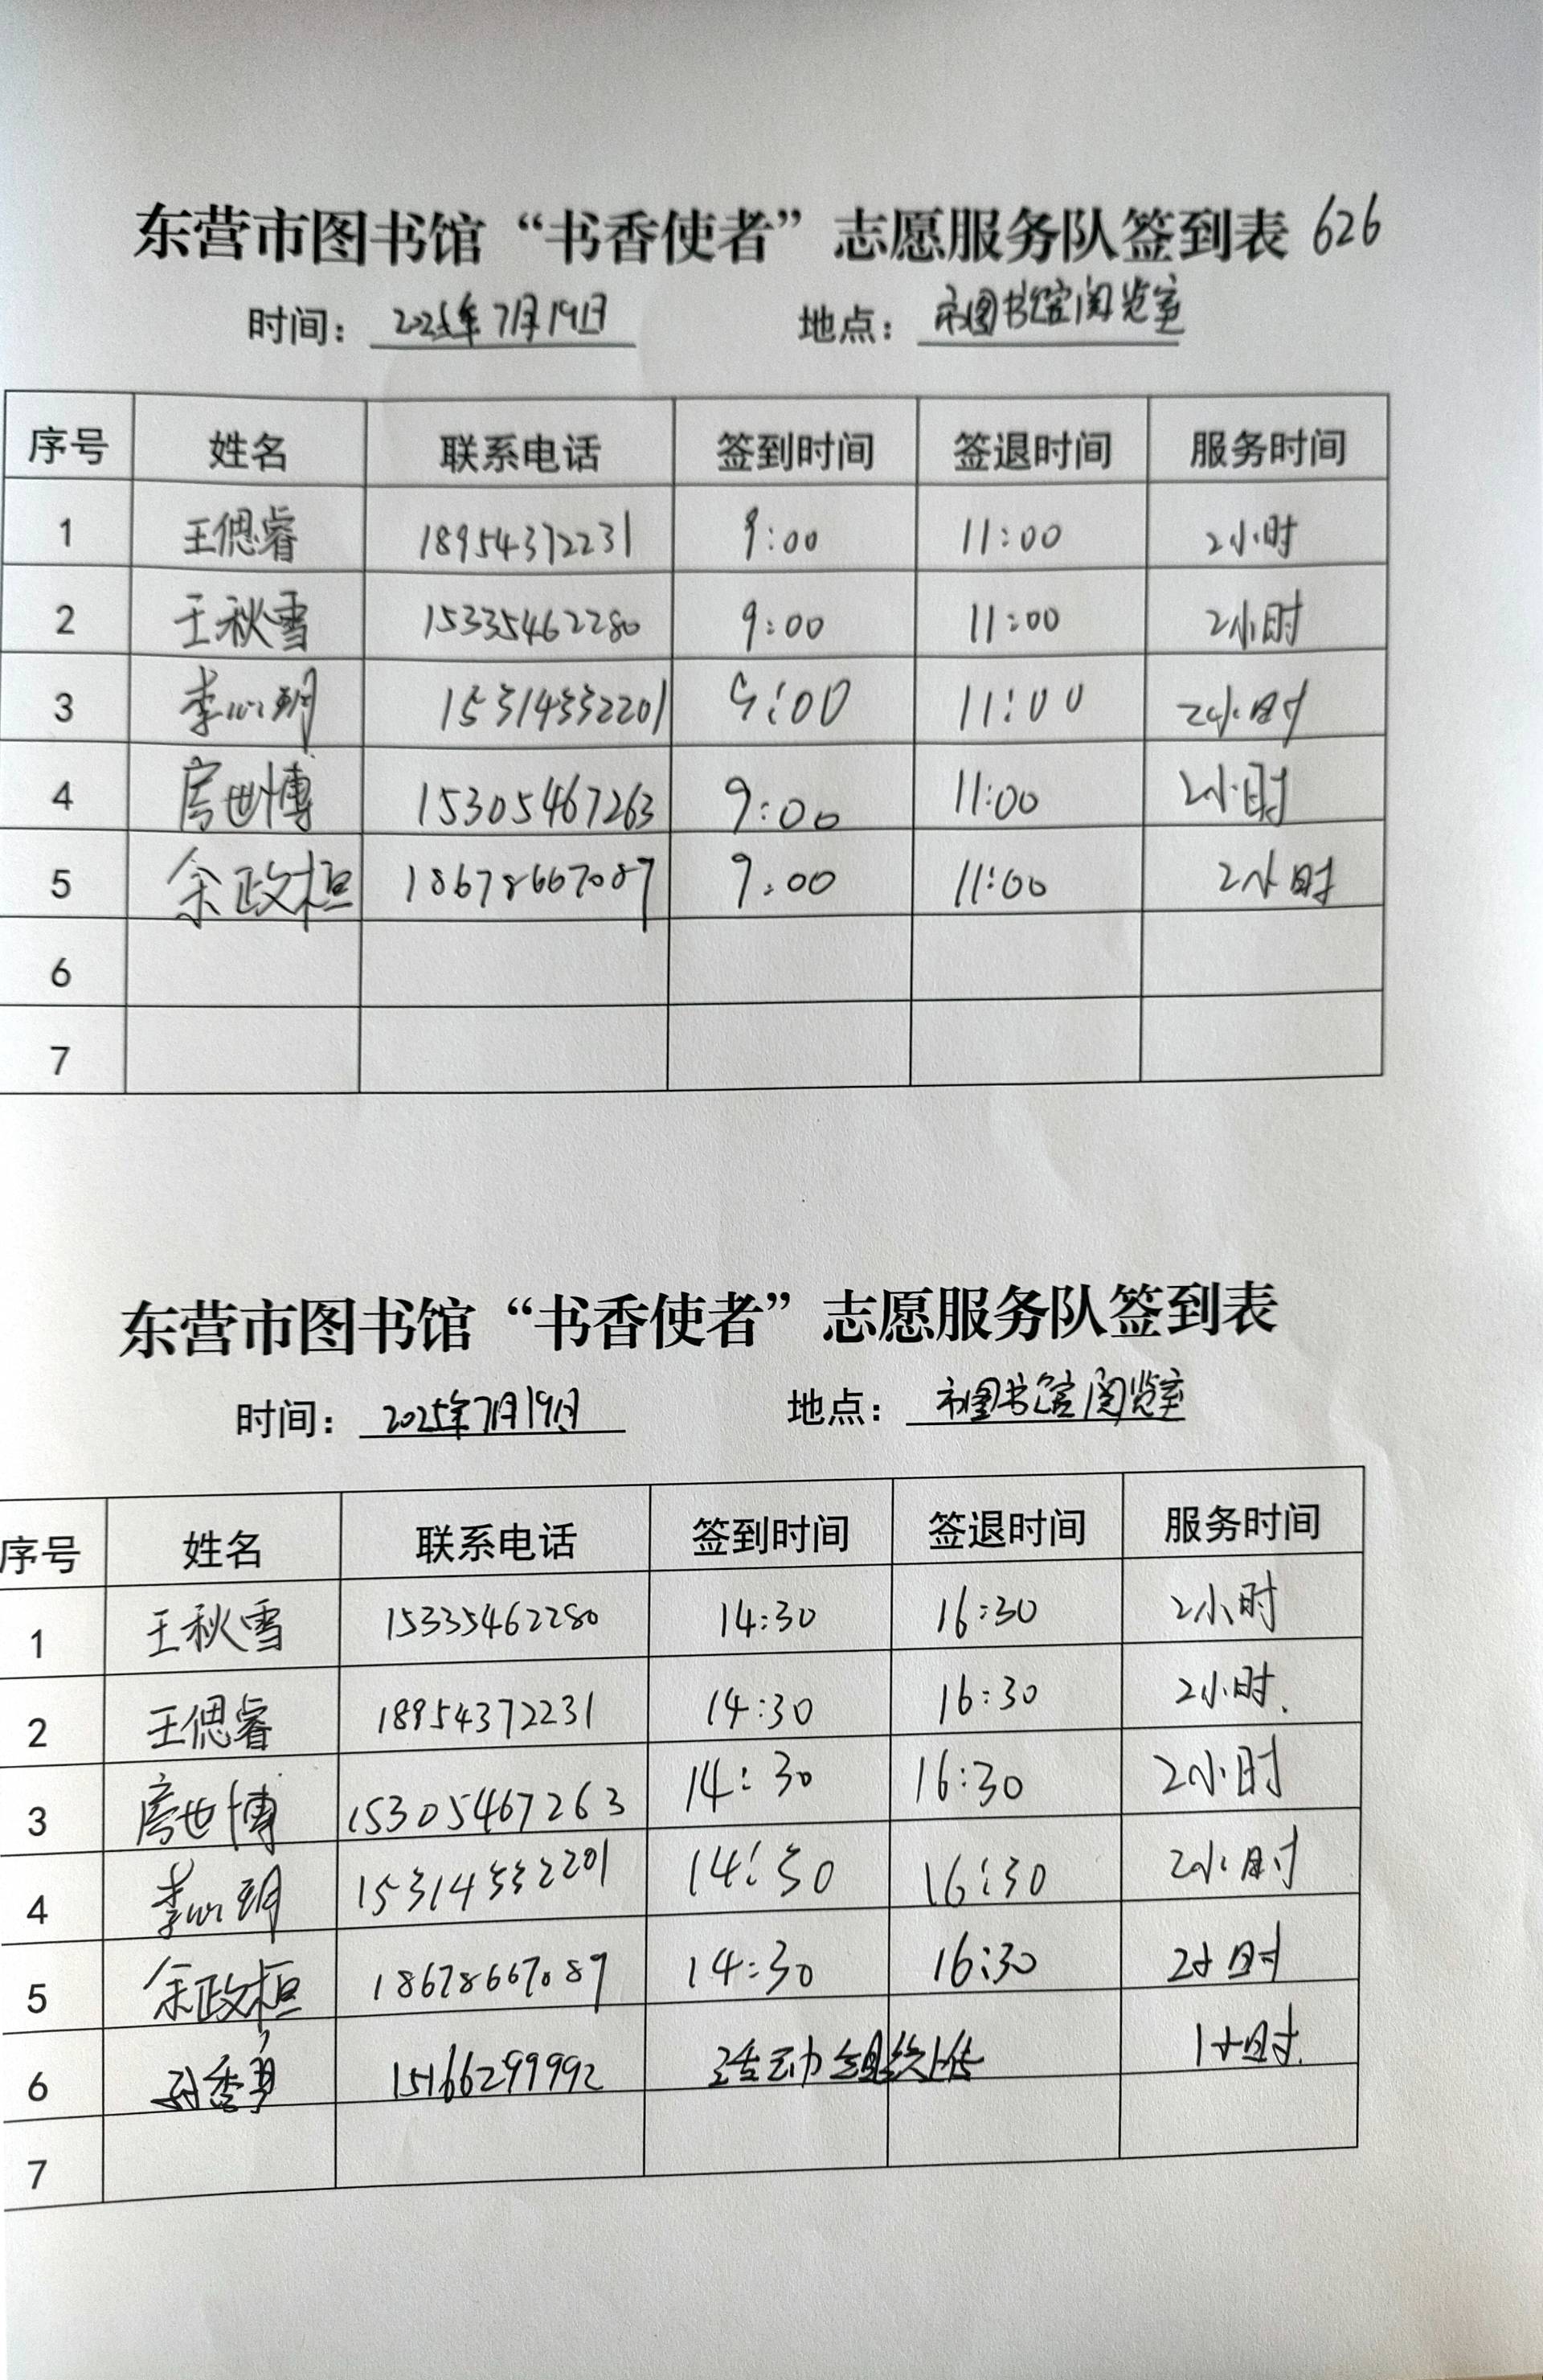 东营市图书馆“书香使者”志愿服务队签到表 626
时间: 2025年7月19日 地点: 市图书馆阅览室
序号 姓名 联系电话 签到时间 签退时间 服务时间
1 王偲睿 18954372231 9:00 11:00 2小时
2 王秋雪 15335462280 9:00 11:00 2小时
3 李心玥 15314332201 9:00 11:00 2小时
4 房世博 15305467263 9:00 11:00 2小时
5 余政桓 18678667087 9:00 11:00 2小时
6
7
东营市图书馆“书香使者”志愿服务队签到表
时间: 2025年7月19日 地点: 市图书馆阅览室
序号 姓名 联系电话 签到时间 签退时间 服务时间
1 王秋雪 15335462280 14:30 16:30 2小时
2 王偲睿 18954372231 14:30 16:30 2小时.
3 房世博 15305467263 14:30 16:30 2小时
4 李心玥 15314332201 14:30 16:30 2小时
5 余政桓 18678667087 14:30 16:30 2小时
6 15166299992 活动组织上传 1小时.
7